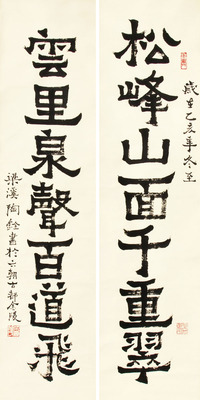 松峰山面千重翠
歲在乙亥年冬至
雲里泉聲百道飛
梁溪陶銓書於六朝古都金陵